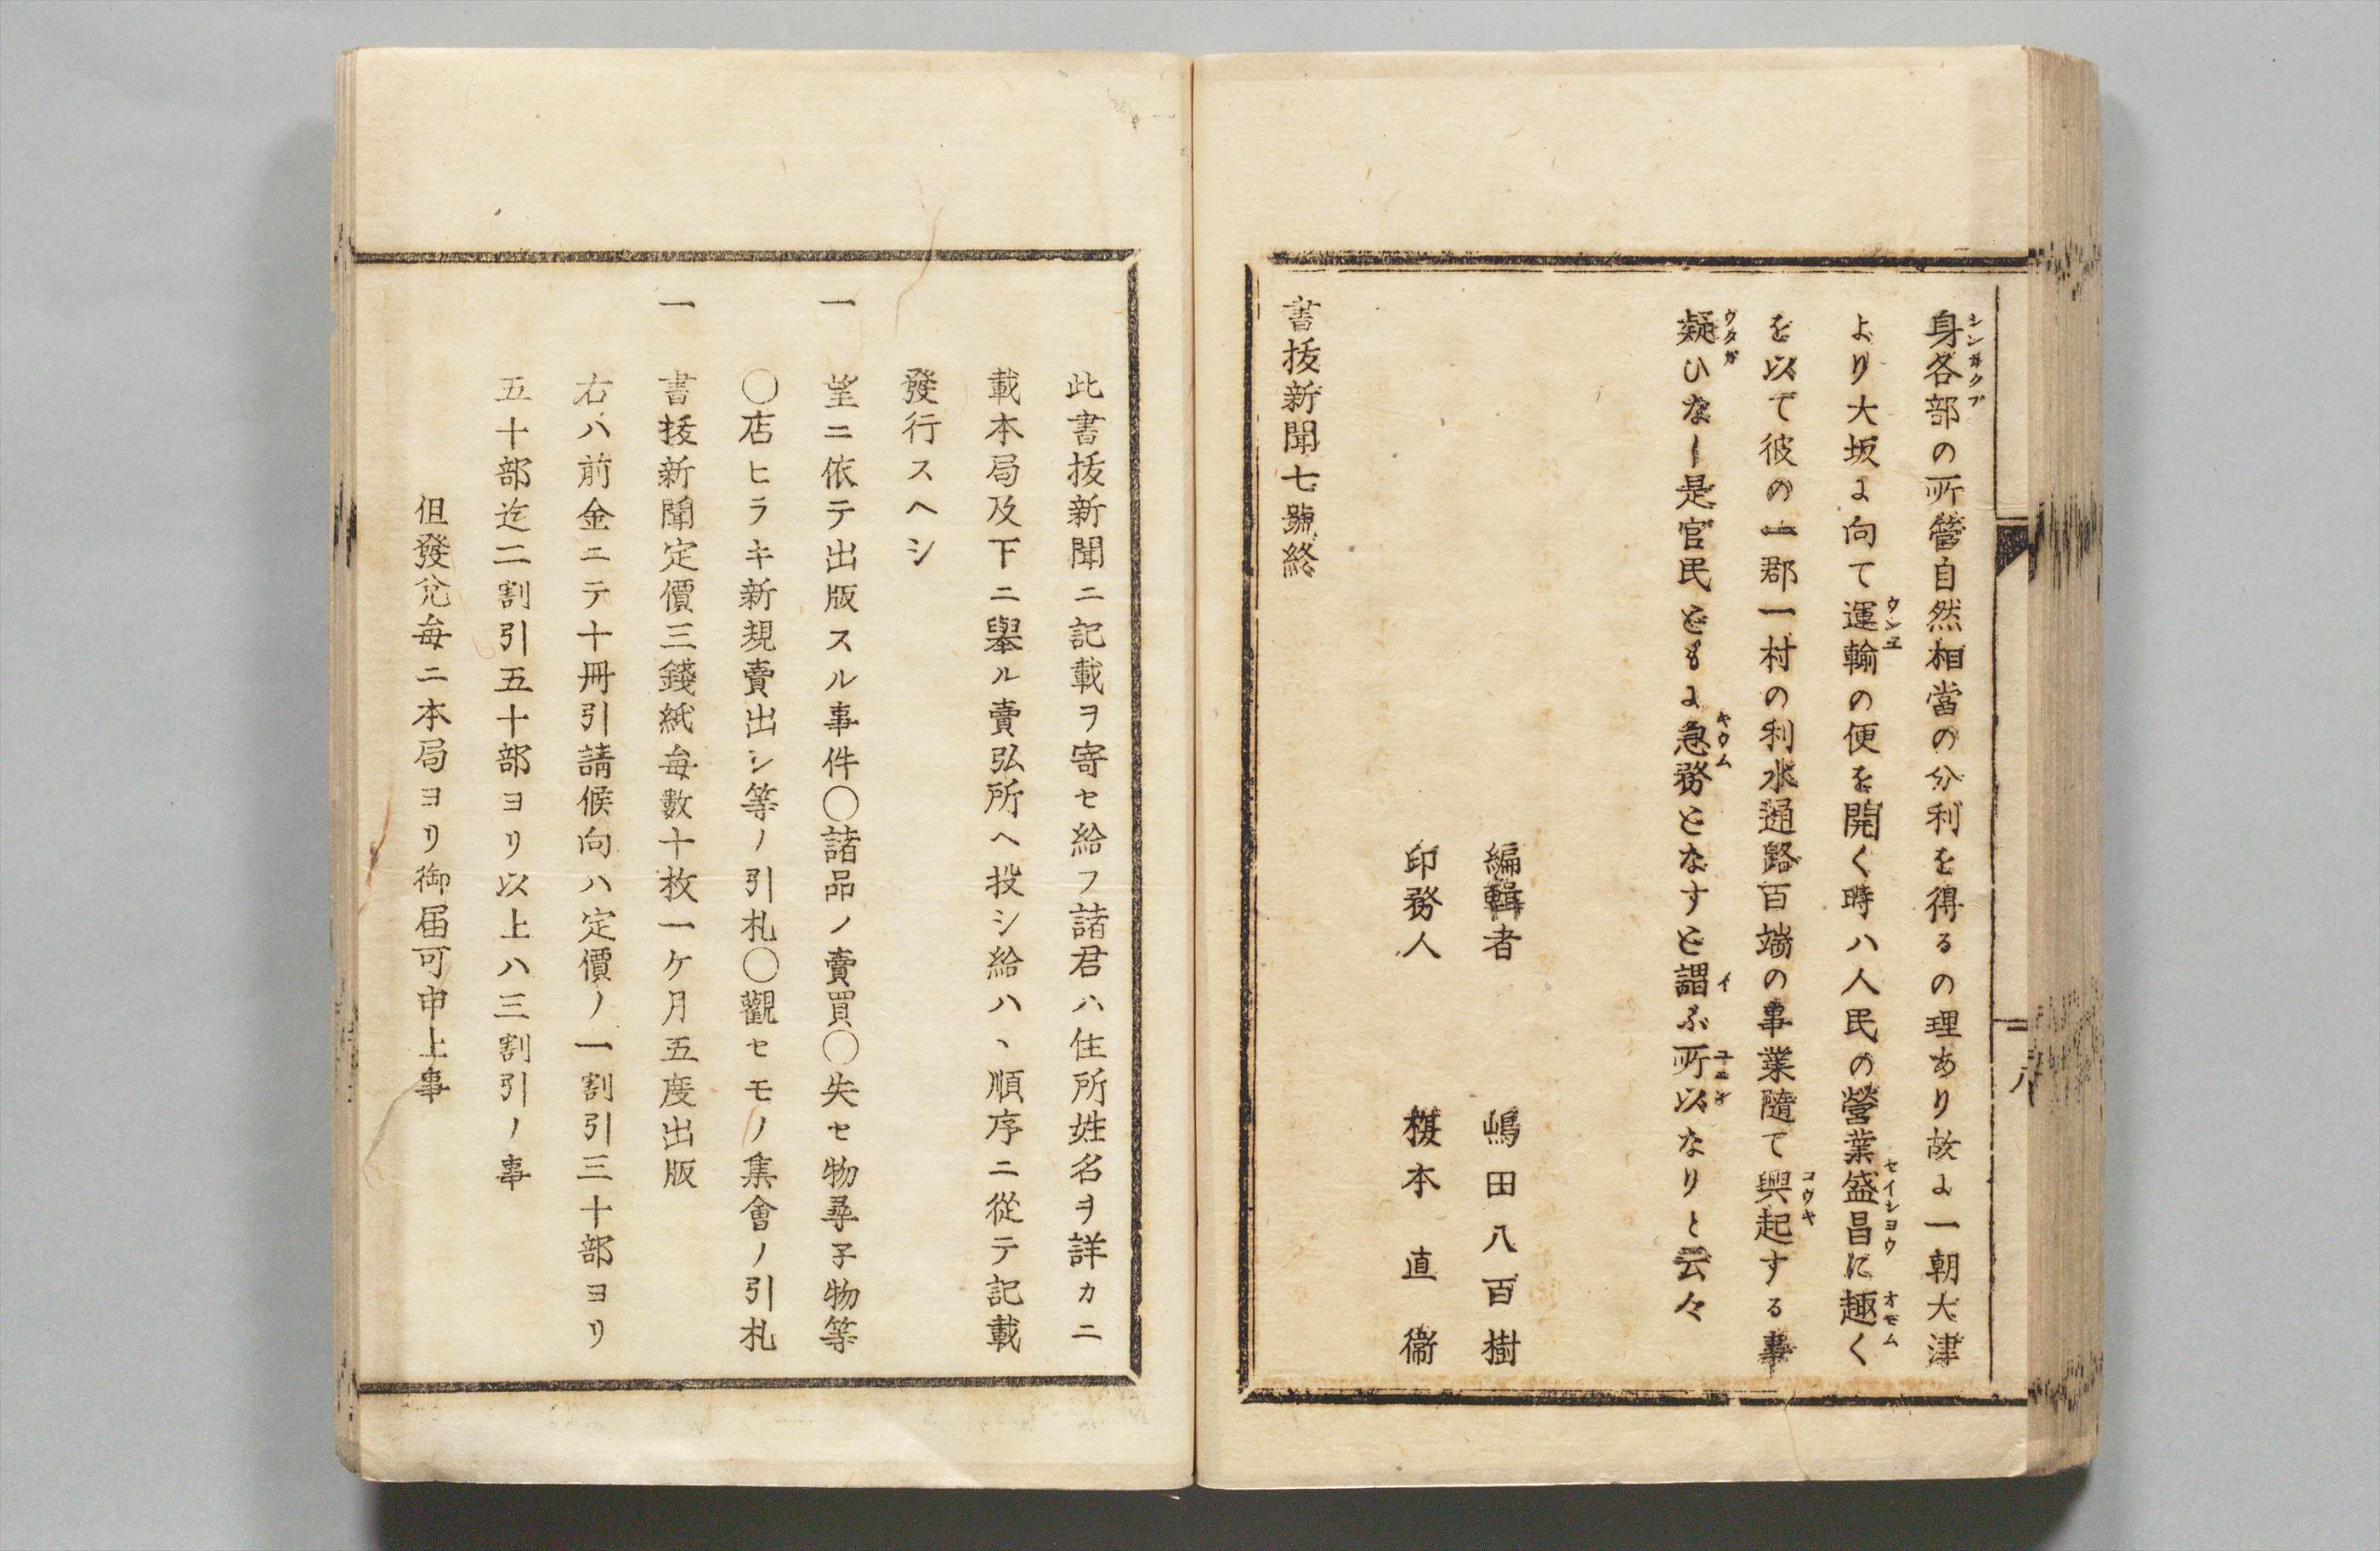 身各部の所管自然相當の分利を得るの理あり故に一朝大津
より大坂に向て運輸の便を開く時ハ人民の營業盛昌に趣く
を以て彼の一郡一村の利水通路百端の事業隨て興起する事
疑ひなし是官民ともに急務となすと謂ふ所以なりと云々
編輯者 嶋田八百樹
印務人 榎本直衞
書拔新聞七號終
八
此書拔新聞ニ記載ヲ寄セ給フ諸君ハ住所姓名ヲ詳カニ
載本局及下ニ擧ル賣弘所ヘ投シ給ハヽ順序ニ從テ記載
發行スヘシ
一 望ニ依テ出版スル事件〇諸品ノ賣買〇失セ物尋子物等
〇店ヒラキ新規賣出シ等ノ引札〇觀セモノノ集會ノ引札
一 書拔新聞定價三錢紙每數十枚一ケ月五度出版
右ハ前金ニテ十冊引請候向ハ定價ノ一割引三十部ヨリ
五十部迄二割引五十部ヨリ以上ハ三割引ノ事
但發兌每ニ本局ヨリ御届可申上事